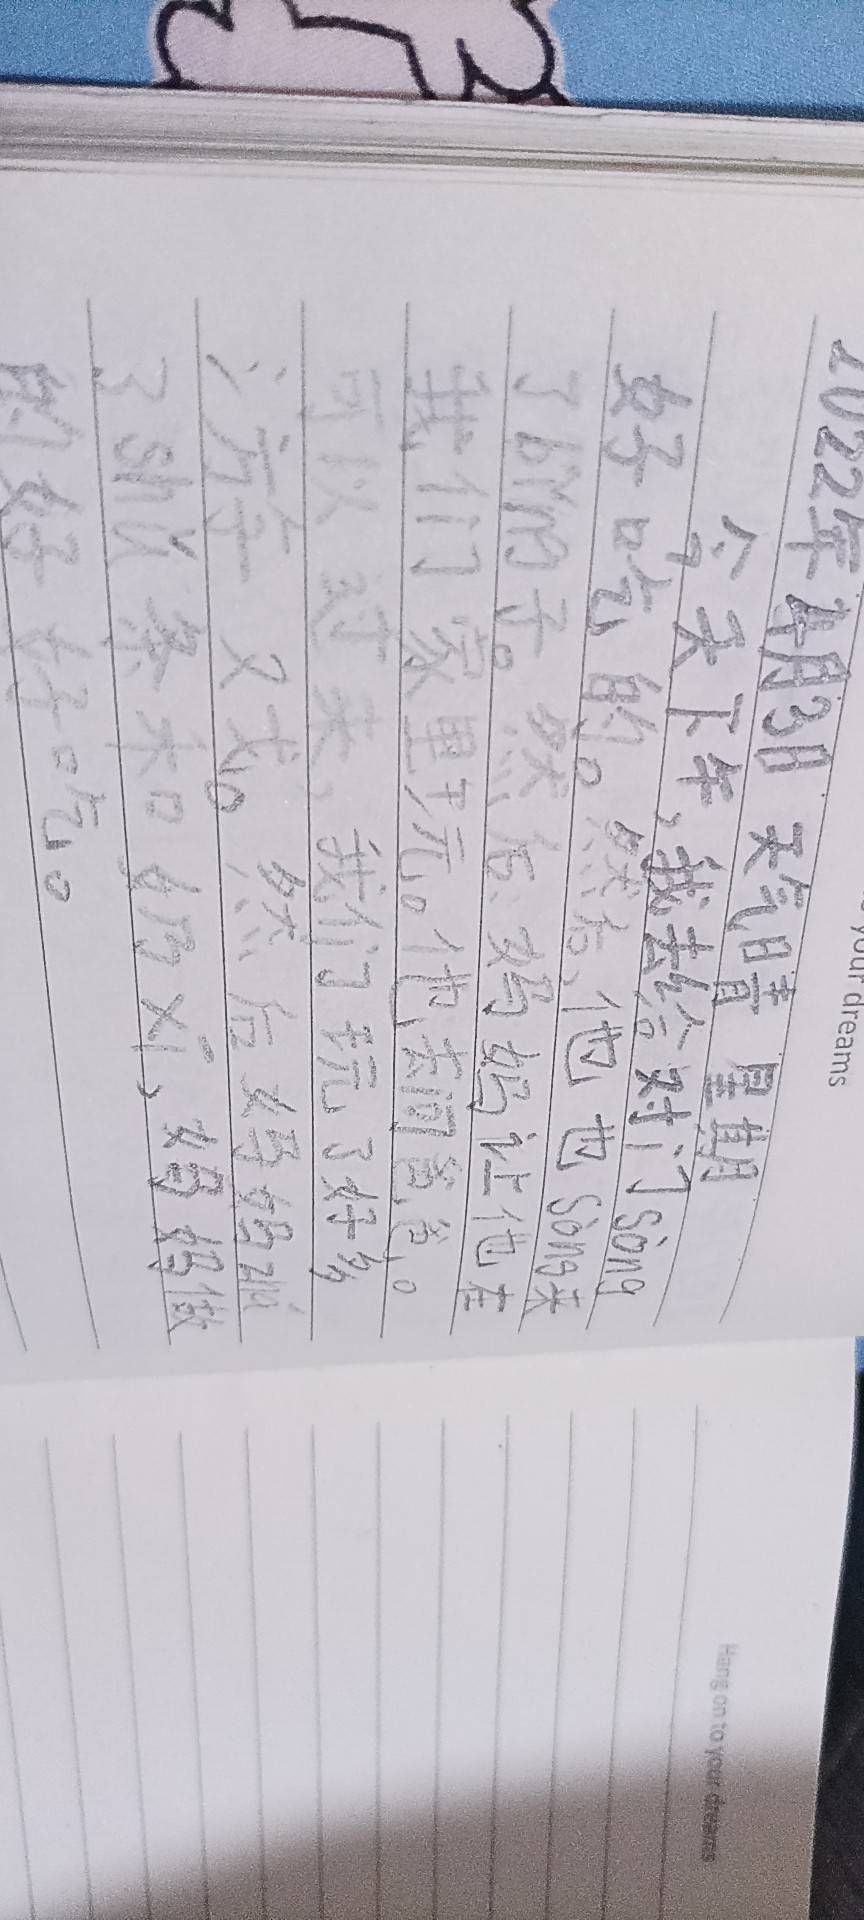 your dreams
2022年4月3日 天气晴 星期
今天下午,我去给对门sòng
好吃的。然后,他也sòng来
了bǐng子。然后妈妈让他在
我们家里玩。他去问爸爸。
可以过来,我们玩了好多
游戏。然后妈妈
了shǔ条和奶 ,妈妈做
的好好吃。
Hang on to your dreams